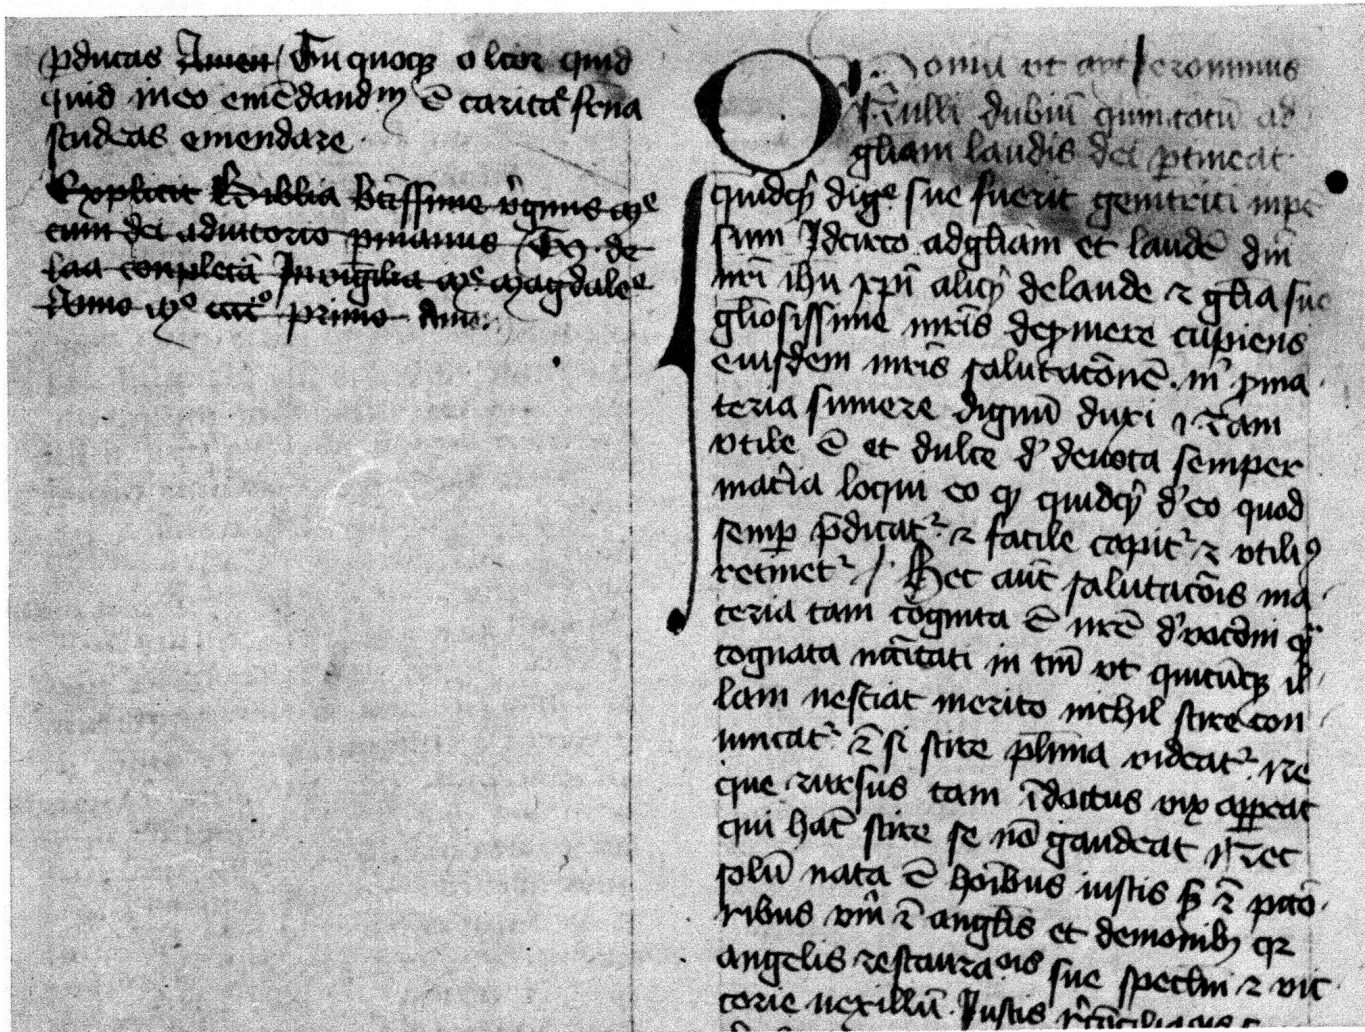 p̄ducas Amen / Tu quoqꝫ o lc̄or quid
quid in eo emēdandū ē caritāᵉ fr̄na
studeas emendare
Explicit Biblia btīssime v̓gínis Mᵉ
cum dei adiutorio p manus de
conpletā In vigilia Mᵉ Magdaleᵉ
Anno Mᵒ primo Amē
Quoniā ut ait Jeronimus
Nulli dubiū quin totū ad
gl̄iam laudis dei p̄tineat
quidqͥꝫ digᵉ sue fuerit genitrici inpē
sum Idcirco ad gl̄iam et laudē dn̄i
nr̄i ih̄u xp̄i aliqͥꝫ de laude ⁊ gl̄ia sue
gl̄iosissime mr̄is dep̄mere cupiens
eiusdem mr̄is salutac̄onē ꝓ ma
teria sumere dignū duxi Nam
vtile ē et dulce d̓ deuota semper
mat̓ia loqui eo qꝫ quidqͥꝫ d̓ eo quod
semp p̄dicatʳ ⁊ facile capitʳ ⁊ vtiliꝰ
retinetʳ / Hec aūt salutac̄ois ma
teria tam cōgnita ē nr̄e
cognata in tm̄ vt quicūqꝫ il
lam nesciat merito nichil scire con
uincatʳ ⁊ si scire pl̄rima videatʳ Ne
que rursus tam īdoctus vix appeat
qui hāc scire se nō gaudeat Nec
solū nata ē hoībus iustis sꝫ ⁊ pc̄cō
ribus vm̄ ⁊ angl̄is et demonibꝫ qꝛ
angelis restauraᵒⁿⁱˢ sue spec̄lm ⁊ vic
torie vexillū Iustis